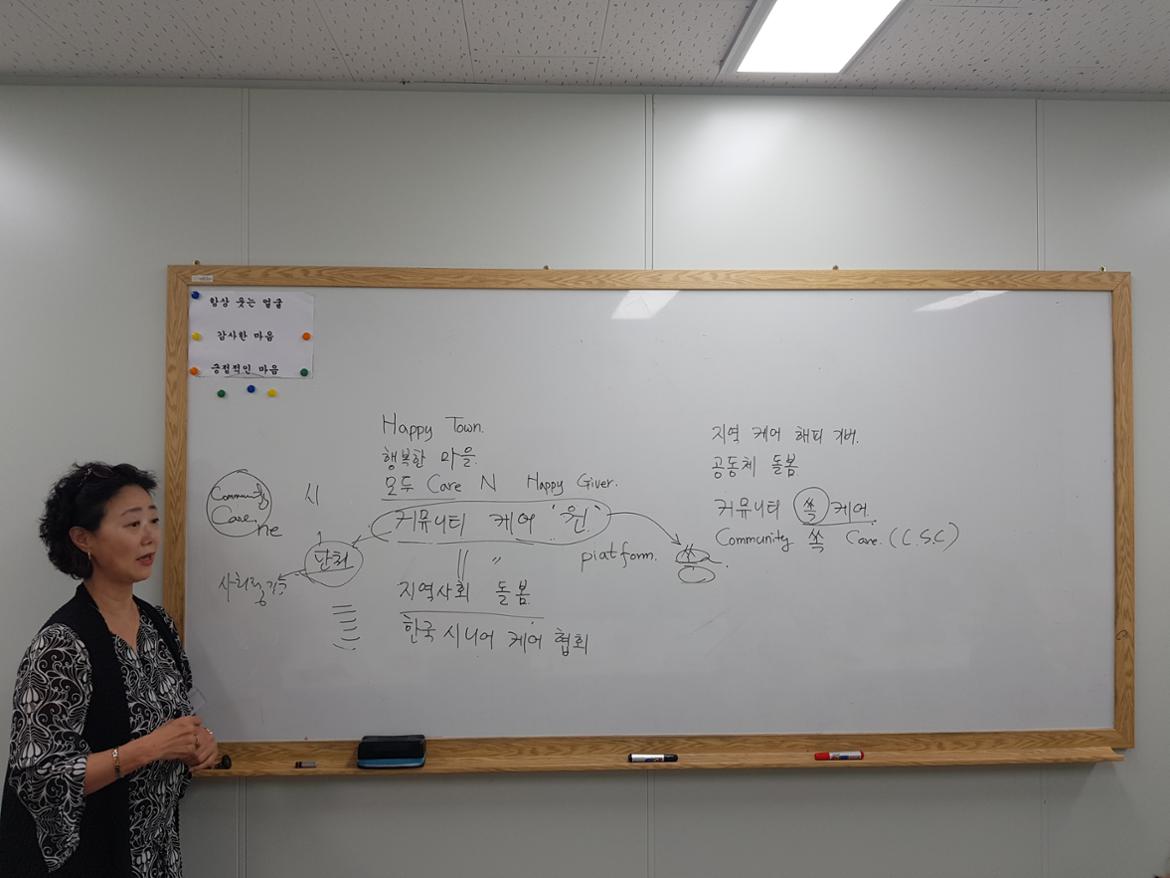 항상 웃는 얼굴
감사한 마음
긍정적인 마음
Happy Town.
행복한 마을.
모두 Care N Happy Giver.
커뮤니티 케어 "원"
Community
Care
ne
시
단체
지역사회 돌봄
한국 시니어 케어 협회
platform.
쏙
지역 케어 해피 기버.
공동체 돌봄
커뮤니티 쏙 케어.
Community 쏙 Care. (C.S.C)